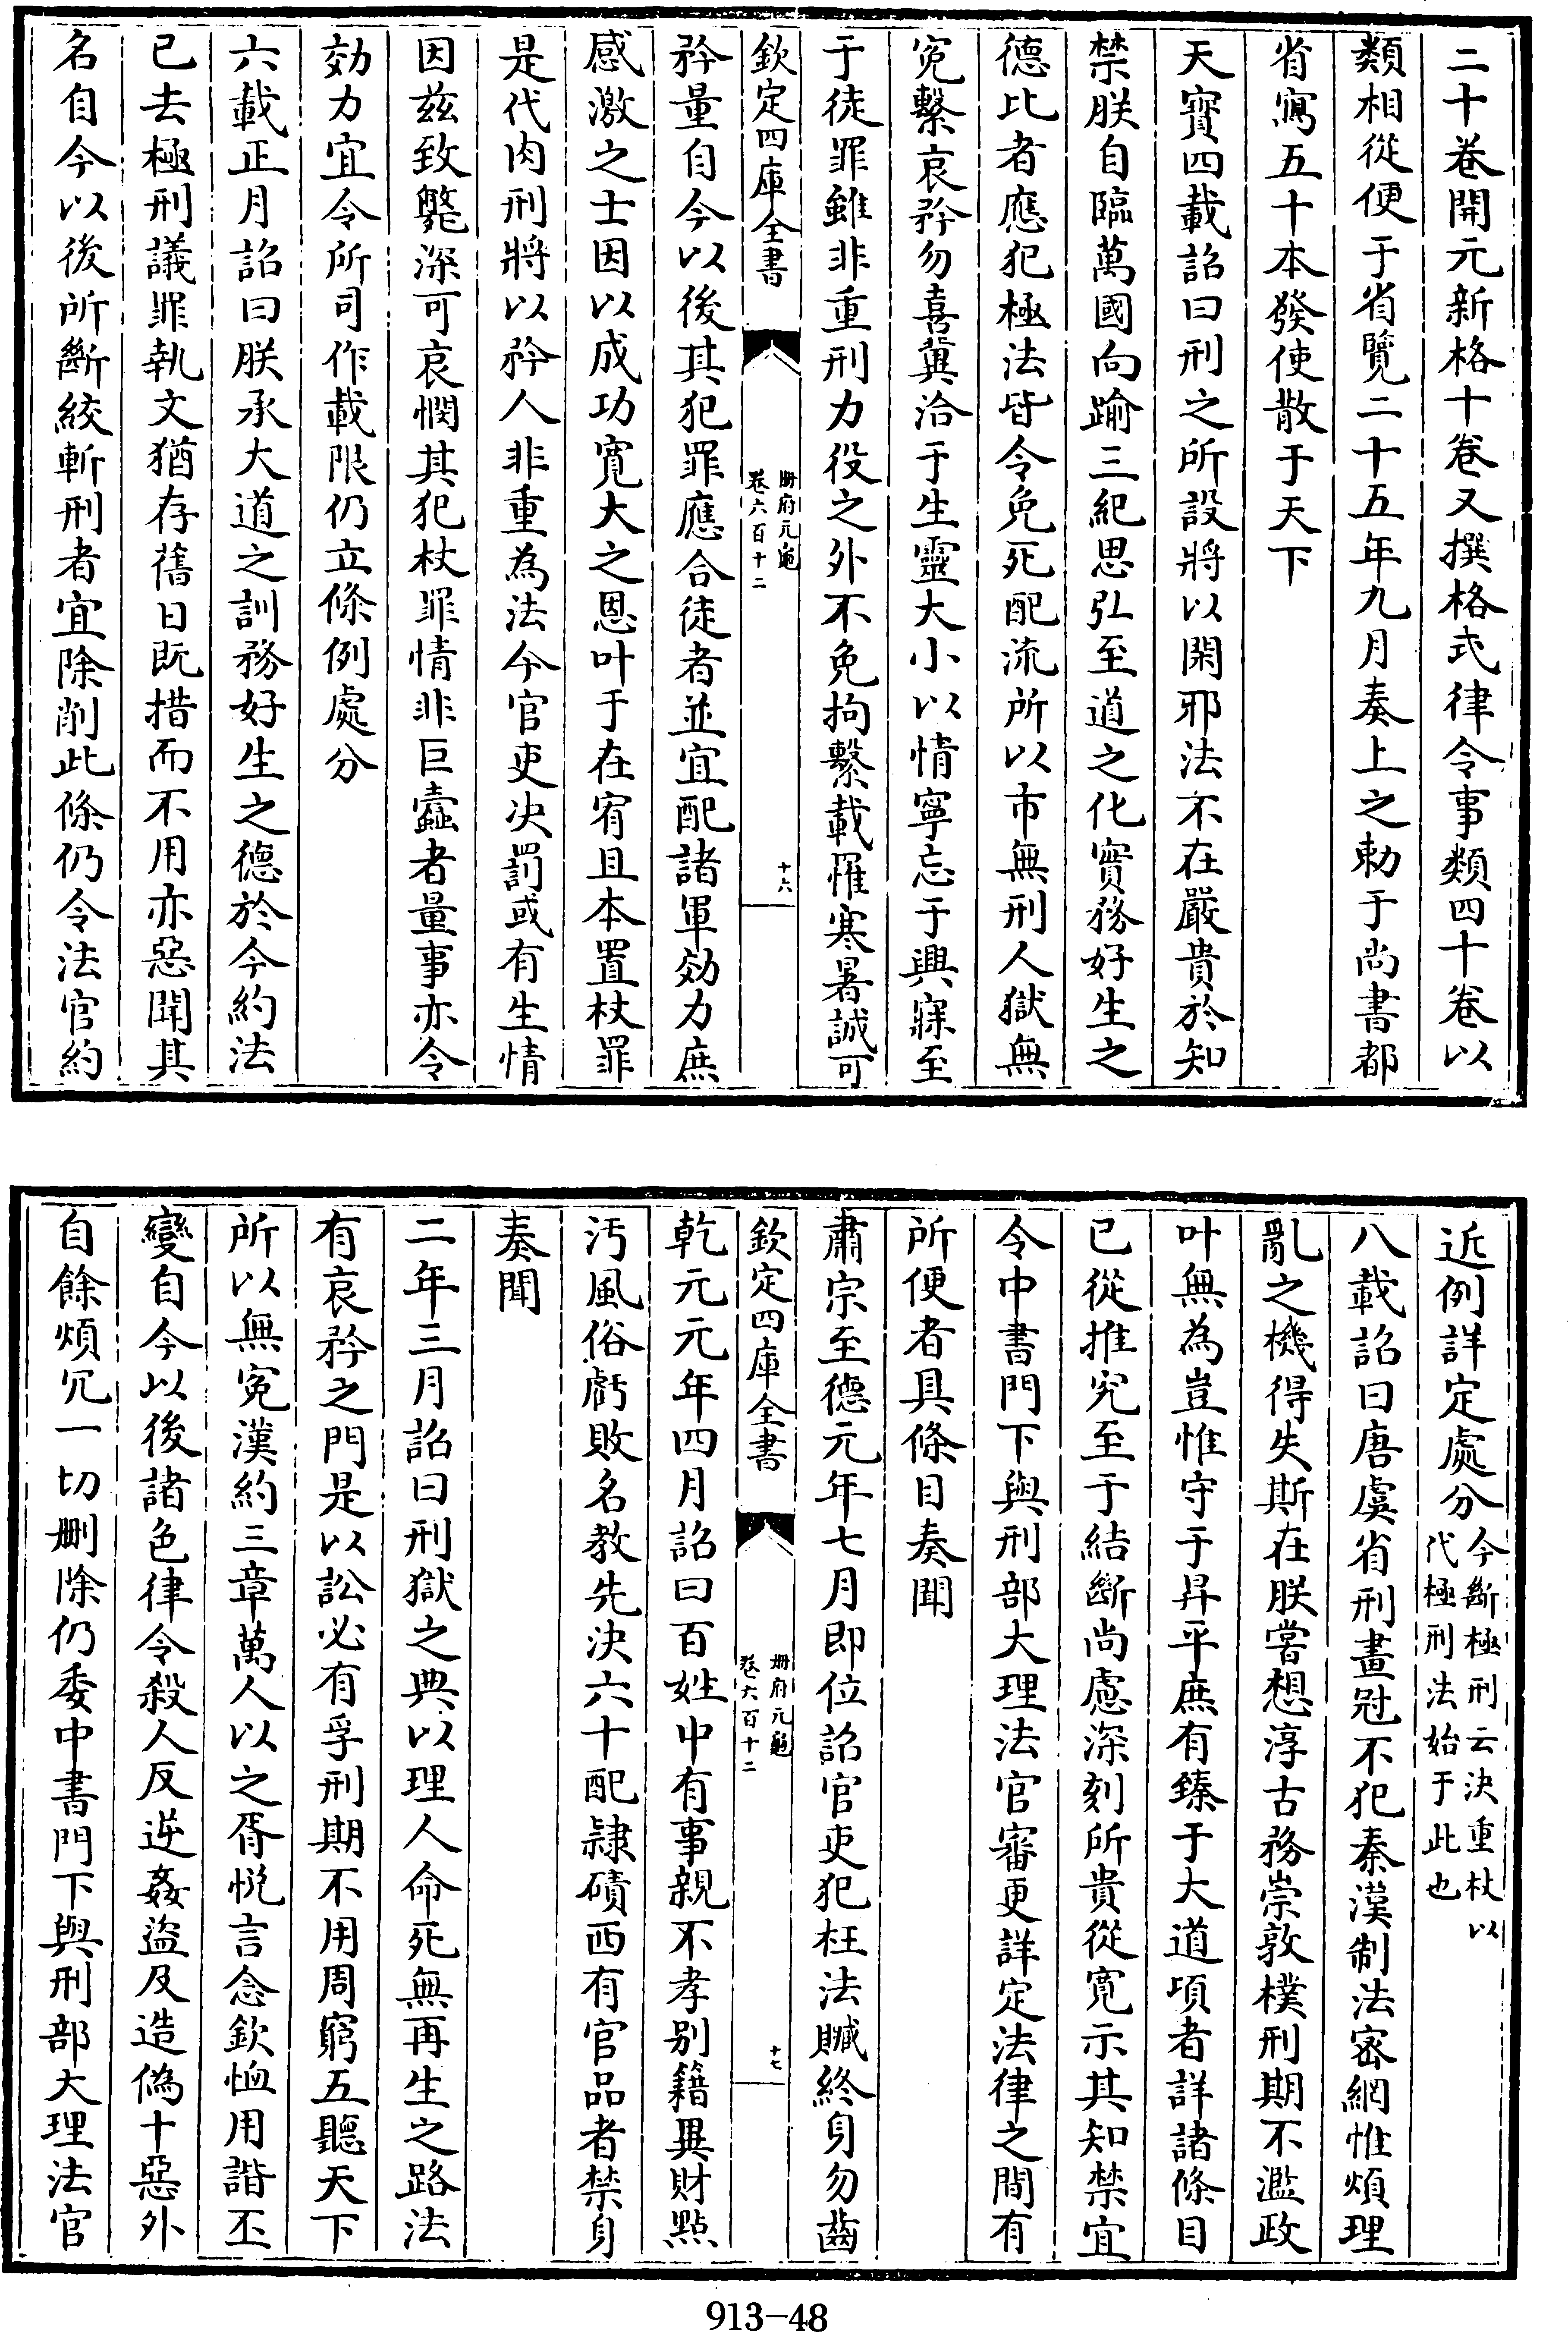 二十卷開元新格十卷又撰格式律令事類四十卷以
類相從便于省覽二十五年九月奏上之勅于尚書都
省寫五十本發使散于天下
天寶四載詔曰刑之所設將以閑邪法不在嚴貴於知
禁朕自臨萬國向踰三紀思弘至道之化實務好生之
德比者應犯極法皆令免死配流所以市無刑人獄無
寃繫哀矜勿喜冀洽于生靈大小以情寧忘于興寐至
于徒罪雖非重刑力役之外不免拘繫載罹寒暑誠可
欽定四庫全書
冊府元龜
卷六百十二
十六
矜量自今以後其犯罪應合徒者並宜配諸軍効力庶
感激之士因以成功寛大之恩叶于在宥且本置杖罪
是代肉刑將以矜人非重為法今官吏决罰或有生情
因兹致斃深可哀憫其犯杖罪情非巨蠹者量事亦令
効力宜令所司作載限仍立條例處分
六載正月詔曰朕承大道之訓務好生之德於今約法
已去極刑議罪執文猶存舊日既措而不用亦惡聞其
名自今以後所斷絞斬刑者宜除削此條仍令法官約
近例詳定處分今斷極刑云決重杖以
代極刑法始于此也
八載詔曰唐虞省刑畫冠不犯秦漢制法密網惟煩理
亂之機得失斯在朕嘗想淳古務崇敦樸刑期不濫政
叶無為豈惟守于昇平庶有臻于大道項者詳諸條目
已從推究至于結斷尚慮深刻所貴從寛示其知禁宜
令中書門下與刑部大理法官審更詳定法律之間有
所便者具條目奏聞
肅宗至德元年七月即位詔官吏犯枉法贓終身勿齒
欽定四庫全書
冊府元龜
卷六百十二
十七
乾元元年四月詔曰百姓中有事親不孝别籍異財點
汚風俗虧敗名教先決六十配隷磧西有官品者禁身
奏聞
二年三月詔曰刑獄之典以理人命死無再生之路法
有哀矜之門是以訟必有孚刑期不用周窮五聽天下
所以無寃漢約三章萬人以之胥悦言念欽恤用諧丕
變自今以後諸色律令殺人反逆姦盗及造偽十惡外
自餘煩冗一切刪除仍委中書門下與刑部大理法官
913-48